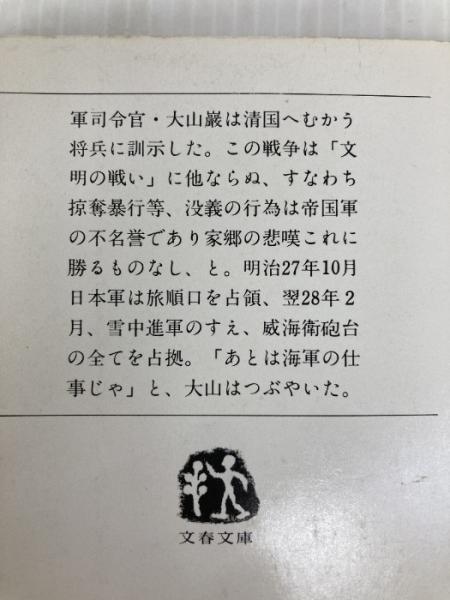 軍司令官・大山巌は清国へむかう
将兵に訓示した。この戦争は「文
明の戦い」に他ならぬ、すなわち
掠奪暴行等、没義の行為は帝国軍
の不名誉であり家郷の悲嘆これに
勝るものなし、と。明治27年10月
日本軍は旅順口を占領、翌28年２
月、雪中進軍のすえ、威海衛砲台
の全てを占拠。「あとは海軍の仕
事じゃ」と、大山はつぶやいた。
文春文庫